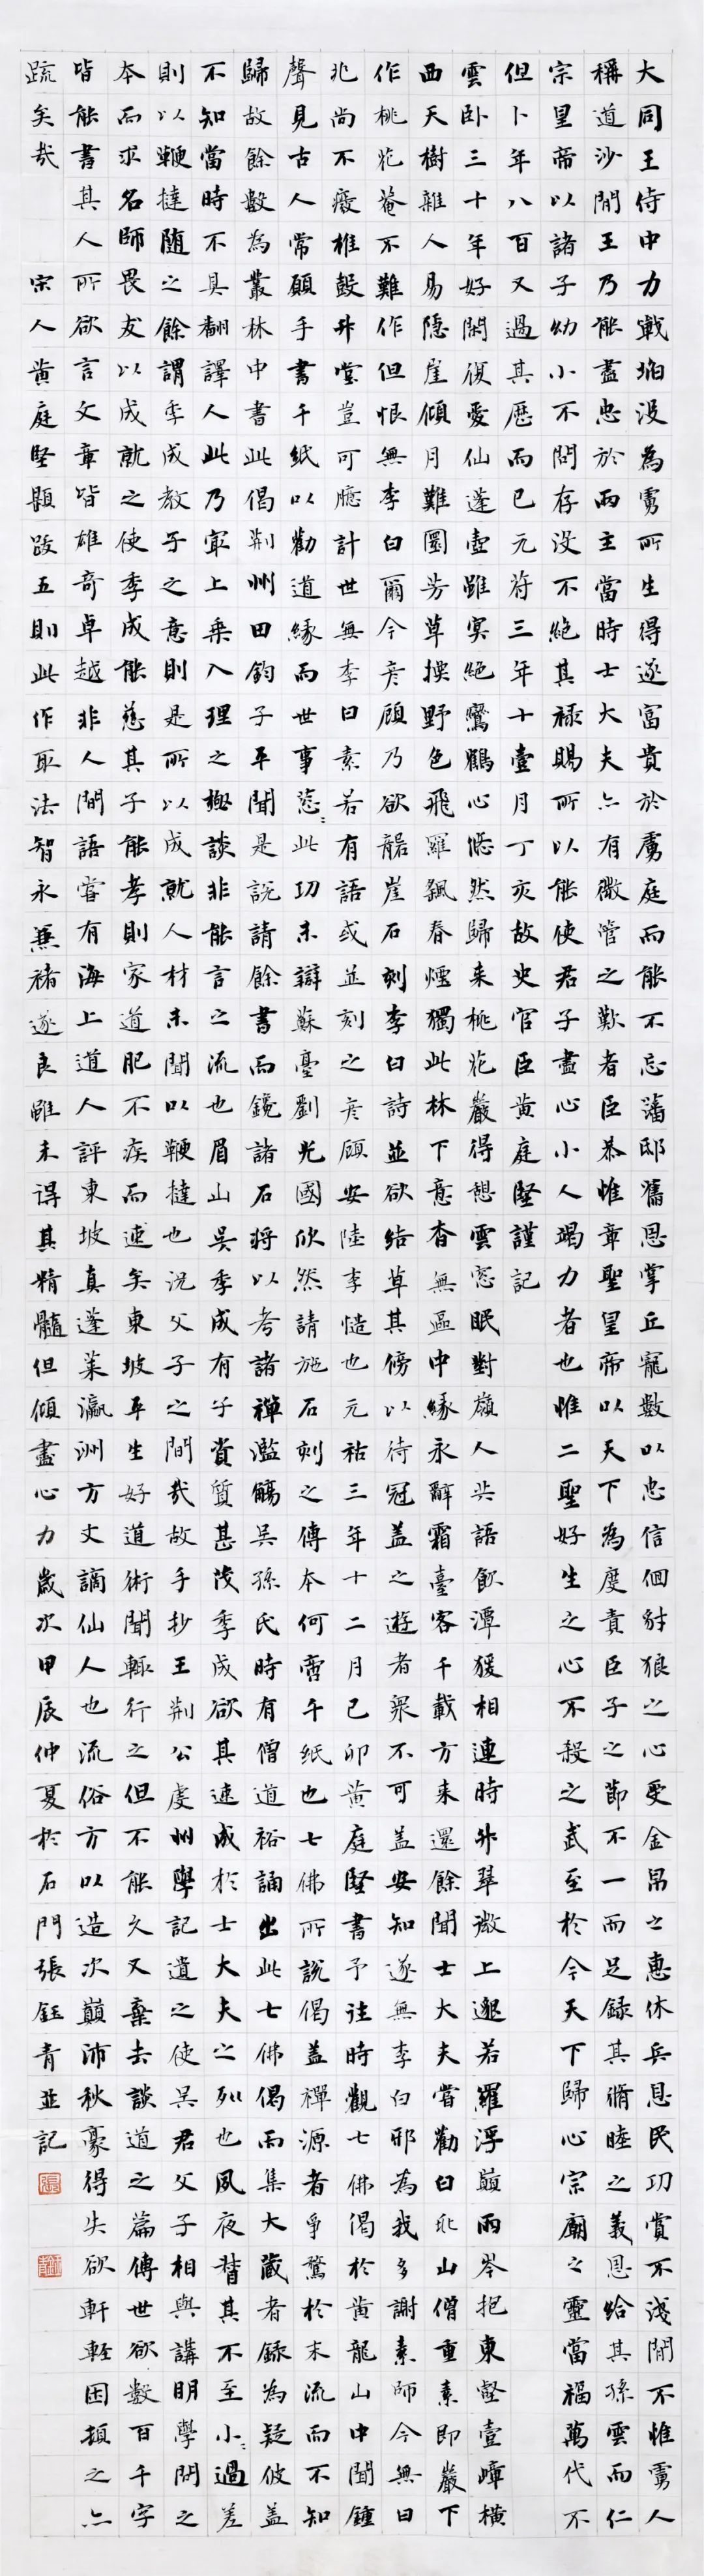 大同王侍中力戰泊沒為虜所生得遂富貴於虜庭而能不忘藩邸舊恩掌丘寵數以忠信個豺狼之心受金帛之惠休兵恩民功賞不淺閒不惟虜人
稱道沙閒王乃能盡忠於兩主當時士大夫亦有微管之歎者臣恭惟章聖皇帝以天下為度責臣子之節不一而足錄其脩睦之義恩給其孫雲而仁
宗皇帝以諸子幼小不問存沒不絕其祿賜所以能使君子盡心小人竭力者也惟二聖好生之心不殺之武至於今天下歸心宗廟之靈當福萬代不
但卜年八百又過其歷而已元符三年十壹月丁亥故史官臣黃庭堅謹記
雲卧三十年好閑復愛仙蓬壺雖冥絕鸞鶴心悠然歸来桃花巖得憩雲窓眠對嶺人共語飲潭猨相連時升翠微上邈若羅浮巔兩岑抱東壑壹嶂橫
西天樹雜人易隱崖傾月難圓芳草換野色飛蘿飄春煙獨此林下意杳無區中緣永辭霜臺客千載方来還餘聞士大夫嘗勸白兆山僧重素即巖下
作桃花菴不難作但恨無李白爾今彦顧乃欲崖石刻李白詩並欲結草其傍以待冠盖之遊者衆不可盖安知遂無李白邪為我多謝素師今無白
兆尚不癈椎鼓升堂豈可臆計世無李白素若有語或並刻之彦顧安陸李慥也元祐三年十二月己卯黃庭堅書予往時觀七佛偈於黃龍山中聞鍾
聲見古人常願手書千紙以勸道緣而世事忩〻此功未辯蘇臺劉光國欣然請施石刻之傳本何啻千紙也七佛所說偈盖禪源者爭騖於末流而不知
歸故餘數為叢林中書此偈荊州田鈞子平聞是說請餘書而鑱諸石將以考諸禪濫觴吳孫氏時有僧道裕誦出此七佛偈而集大藏者錄為疑彼盖
不知當時不具翻譯人此乃㝡上乗入理之極談非能言之流也眉山吳季成有子賞質甚茂季成欲其速成於士大夫之列也夙夜督其不至小〻過差
則以鞭撻随之餘謂季成教子之意則是所以成就人材未聞以鞭撻也況父子之間哉故手抄王荊公虔州學記遺之使吳君父子相與講明學問之
本而求名師畏友以成就之使季成能慈其子能孝則家道肥不疾而速矣東坡平生好道術聞輒行之但不能久又棄去談道之篇傳世欲數百千字
皆能書其人所欲言文章皆雄奇卓越非人閒語嘗有海上道人評東坡真蓬萊瀛洲方丈謫仙人也流俗方以造次顛沛秋豪得失欲軒輊困頓之亦
疏矣哉 宗人黃庭堅題跋五則此作取法智永兼褚遂良雖未得其精髓但傾盡心力歲次甲辰仲夏於石門張鈺青並記